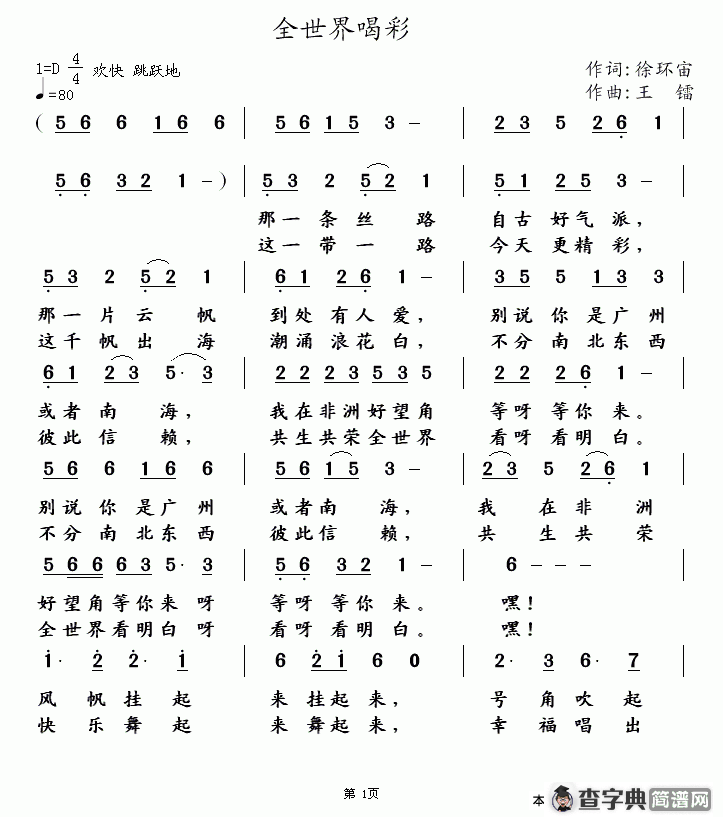 全世界喝彩
1=D 4/4 欢快 跳跃地
♩=80
作词:徐环宙
作曲:王 镭
( 5 6 6 1 6 6 | 5 6 1 5 3 – | 2 3 5 2 6 1 |
5 6 3 2 1 – ) | 5 3 2 5 2 1 | 5 1 2 5 3 – |
那一 条 丝 路 自古 好气 派,
这一 带 一 路 今天 更精 彩,
5 3 2 5 2 1 | 6 1 2 6 1 – | 3 5 5 1 3 3 |
那一 片 云 帆 到处 有人 爱, 别说 你 是广 州
这千 帆 出 海 潮涌 浪花 白, 不分 南 北东 西
6 1 2 3 5· 3 | 2 2 2 3 5 3 5 | 2 2 2 6 1 – |
或者 南 海, 我在非洲好望角 等呀 等你 来。
彼此 信 赖, 共生共荣全世界 看呀 看明 白。
5 6 6 1 6 6 | 5 6 1 5 3 – | 2 3 5 2 6 1 |
别说 你 是广 州 或者南 海, 我 在 非 洲
不分 南 北东 西 彼此信 赖, 共 生 共 荣
5 6 6 6 3 5· 3 | 5 6 3 2 1 – | 6 – – |
好望角等你来 呀 等呀 等你 来。 嘿!
全世界看明白 呀 看呀 看明 白。 嘿!
1· 2 2· 1 | 6 2 1 6 0 | 2· 3 6· 7 |
风 帆 挂 起 来 挂起 来, 号 角 吹 起
快 乐 舞 起 来 舞起 来, 幸 福 唱 出
第 1页
本 查字典简谱网